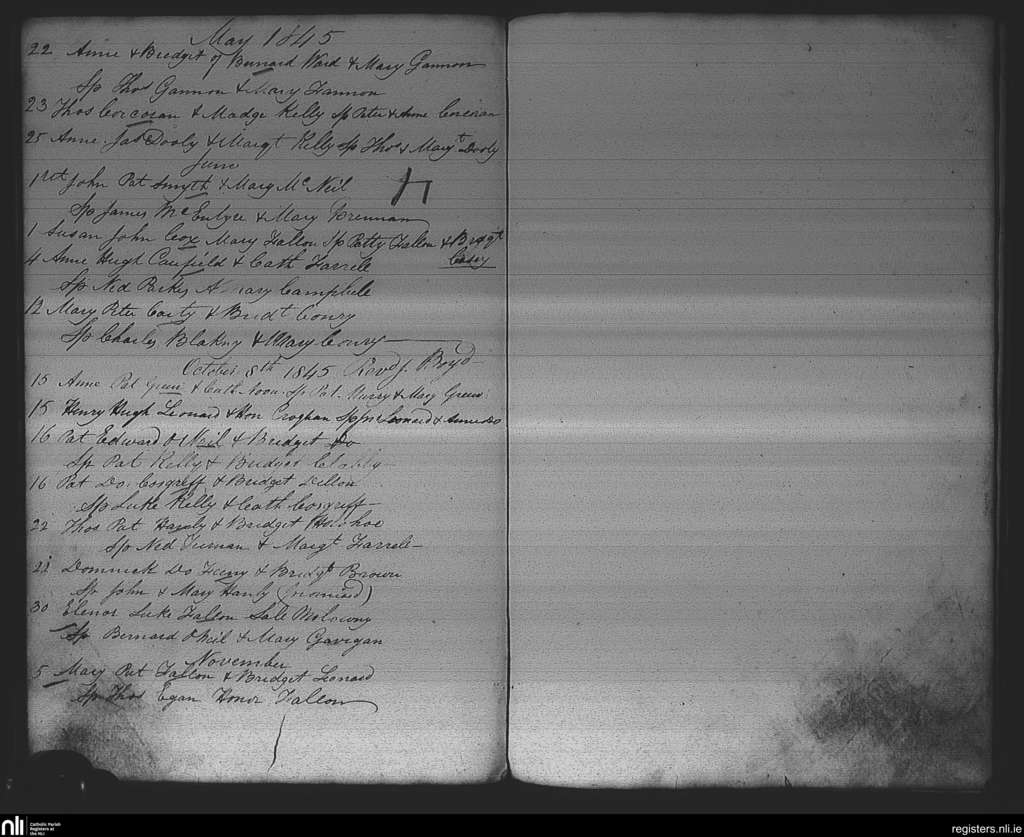 May 1845
22 Anne & Bridget of Bernard Ward & Mary Gannon
Sp Thos Gannon & Mary Hannon
23 Thos Corcoran & Madge Kelly Sp Peter & Anne Corcoran
25 Anne Jas Dooly & Margt Kelly Sp Thos & Margt Dooly
June
1rst John Pat Smyth & Mary Mc Neil
Sp James Mc Entyre & Mary Brennan
1 Susan John Cox Mary Fallon Sp Patty Fallon & Bridgt
Casey
4 Anne Hugh Caufield & Cath Farrell
Sp Ned Parkes & Mary Campbell
12 Mary Peter Carty & Bridt Conry
Sp Charles Blakny & Mary Conry
October 8th 1845 Revd J. Boyd
15 Anne Pat Green & Cath Noon Sp Pat Murry & Mary Green
15 Henry Hugh Leonard & Hon Croghan Sp Leonard & Anne Do
16 Pat Edward O Neil & Bridget Do
Sp Pat Kelly & Bridget
16 Pat Do Cosgreff & Bridget Dillon
Sp Luke Kelly & Cath Cosgreff
22 Thos Pat Hanly & Bridget
Sp Ned & Margt Farrell
Dominick Do Feeny & Bridgt Brown
Sp John & Mary Hanly
30 Elenor Luke Fallon
Sp Bernard ONeil & Mary Gavigan
November
5 Mary Pat Fallon & Bridget Leonard
Sp Thos Egan Honor Fallon
nli
Catholic Parish
Registers at
the NLI
registers.nli.ie